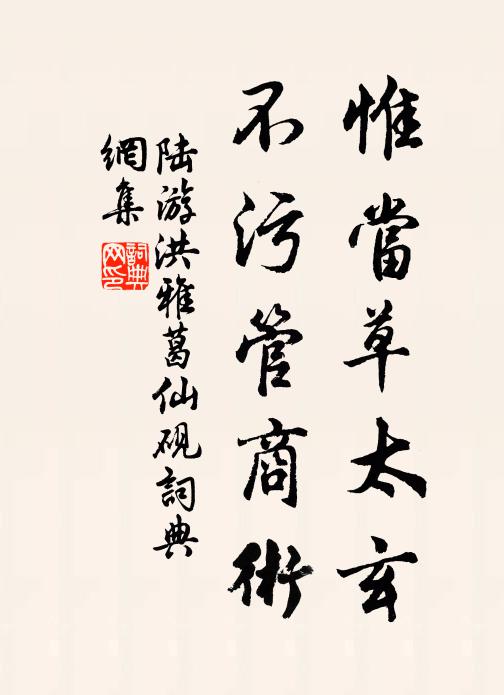 惟當草太玄
不污管商術
陆游洪雅葛仙砚詞典
網集
詞典
网印